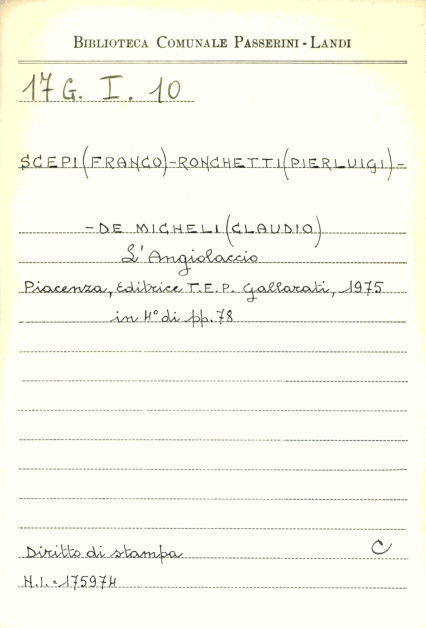 BIBLIOTECA COMUNALE PASSERINI - LANDI
17 G. I. 10
SCEPI (FRANCO) - RONCHETTI (PIERLUIGI) -
- DE MICHELI (CLAUDIO)
L'Angiolaccio
Piacenza, Editrice T.E.P. Gallarati, 1975
in 4° di pp. 78
Diritto di stampa C
N.I. = 175974